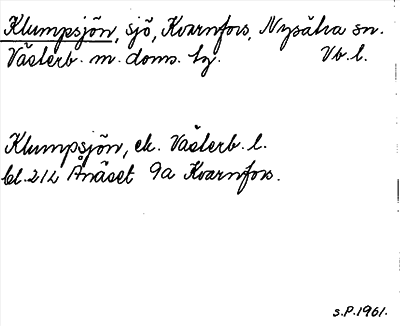 Klumpsjön, sjö, Kvarnfors, Nysätra sn.
Västerb. m. doms. tg. Vb. l.
Klumpsjön, ek. Västerb. l.
bl. 21L Ånäset 9a Kvarnfors.
S.P. 1961.